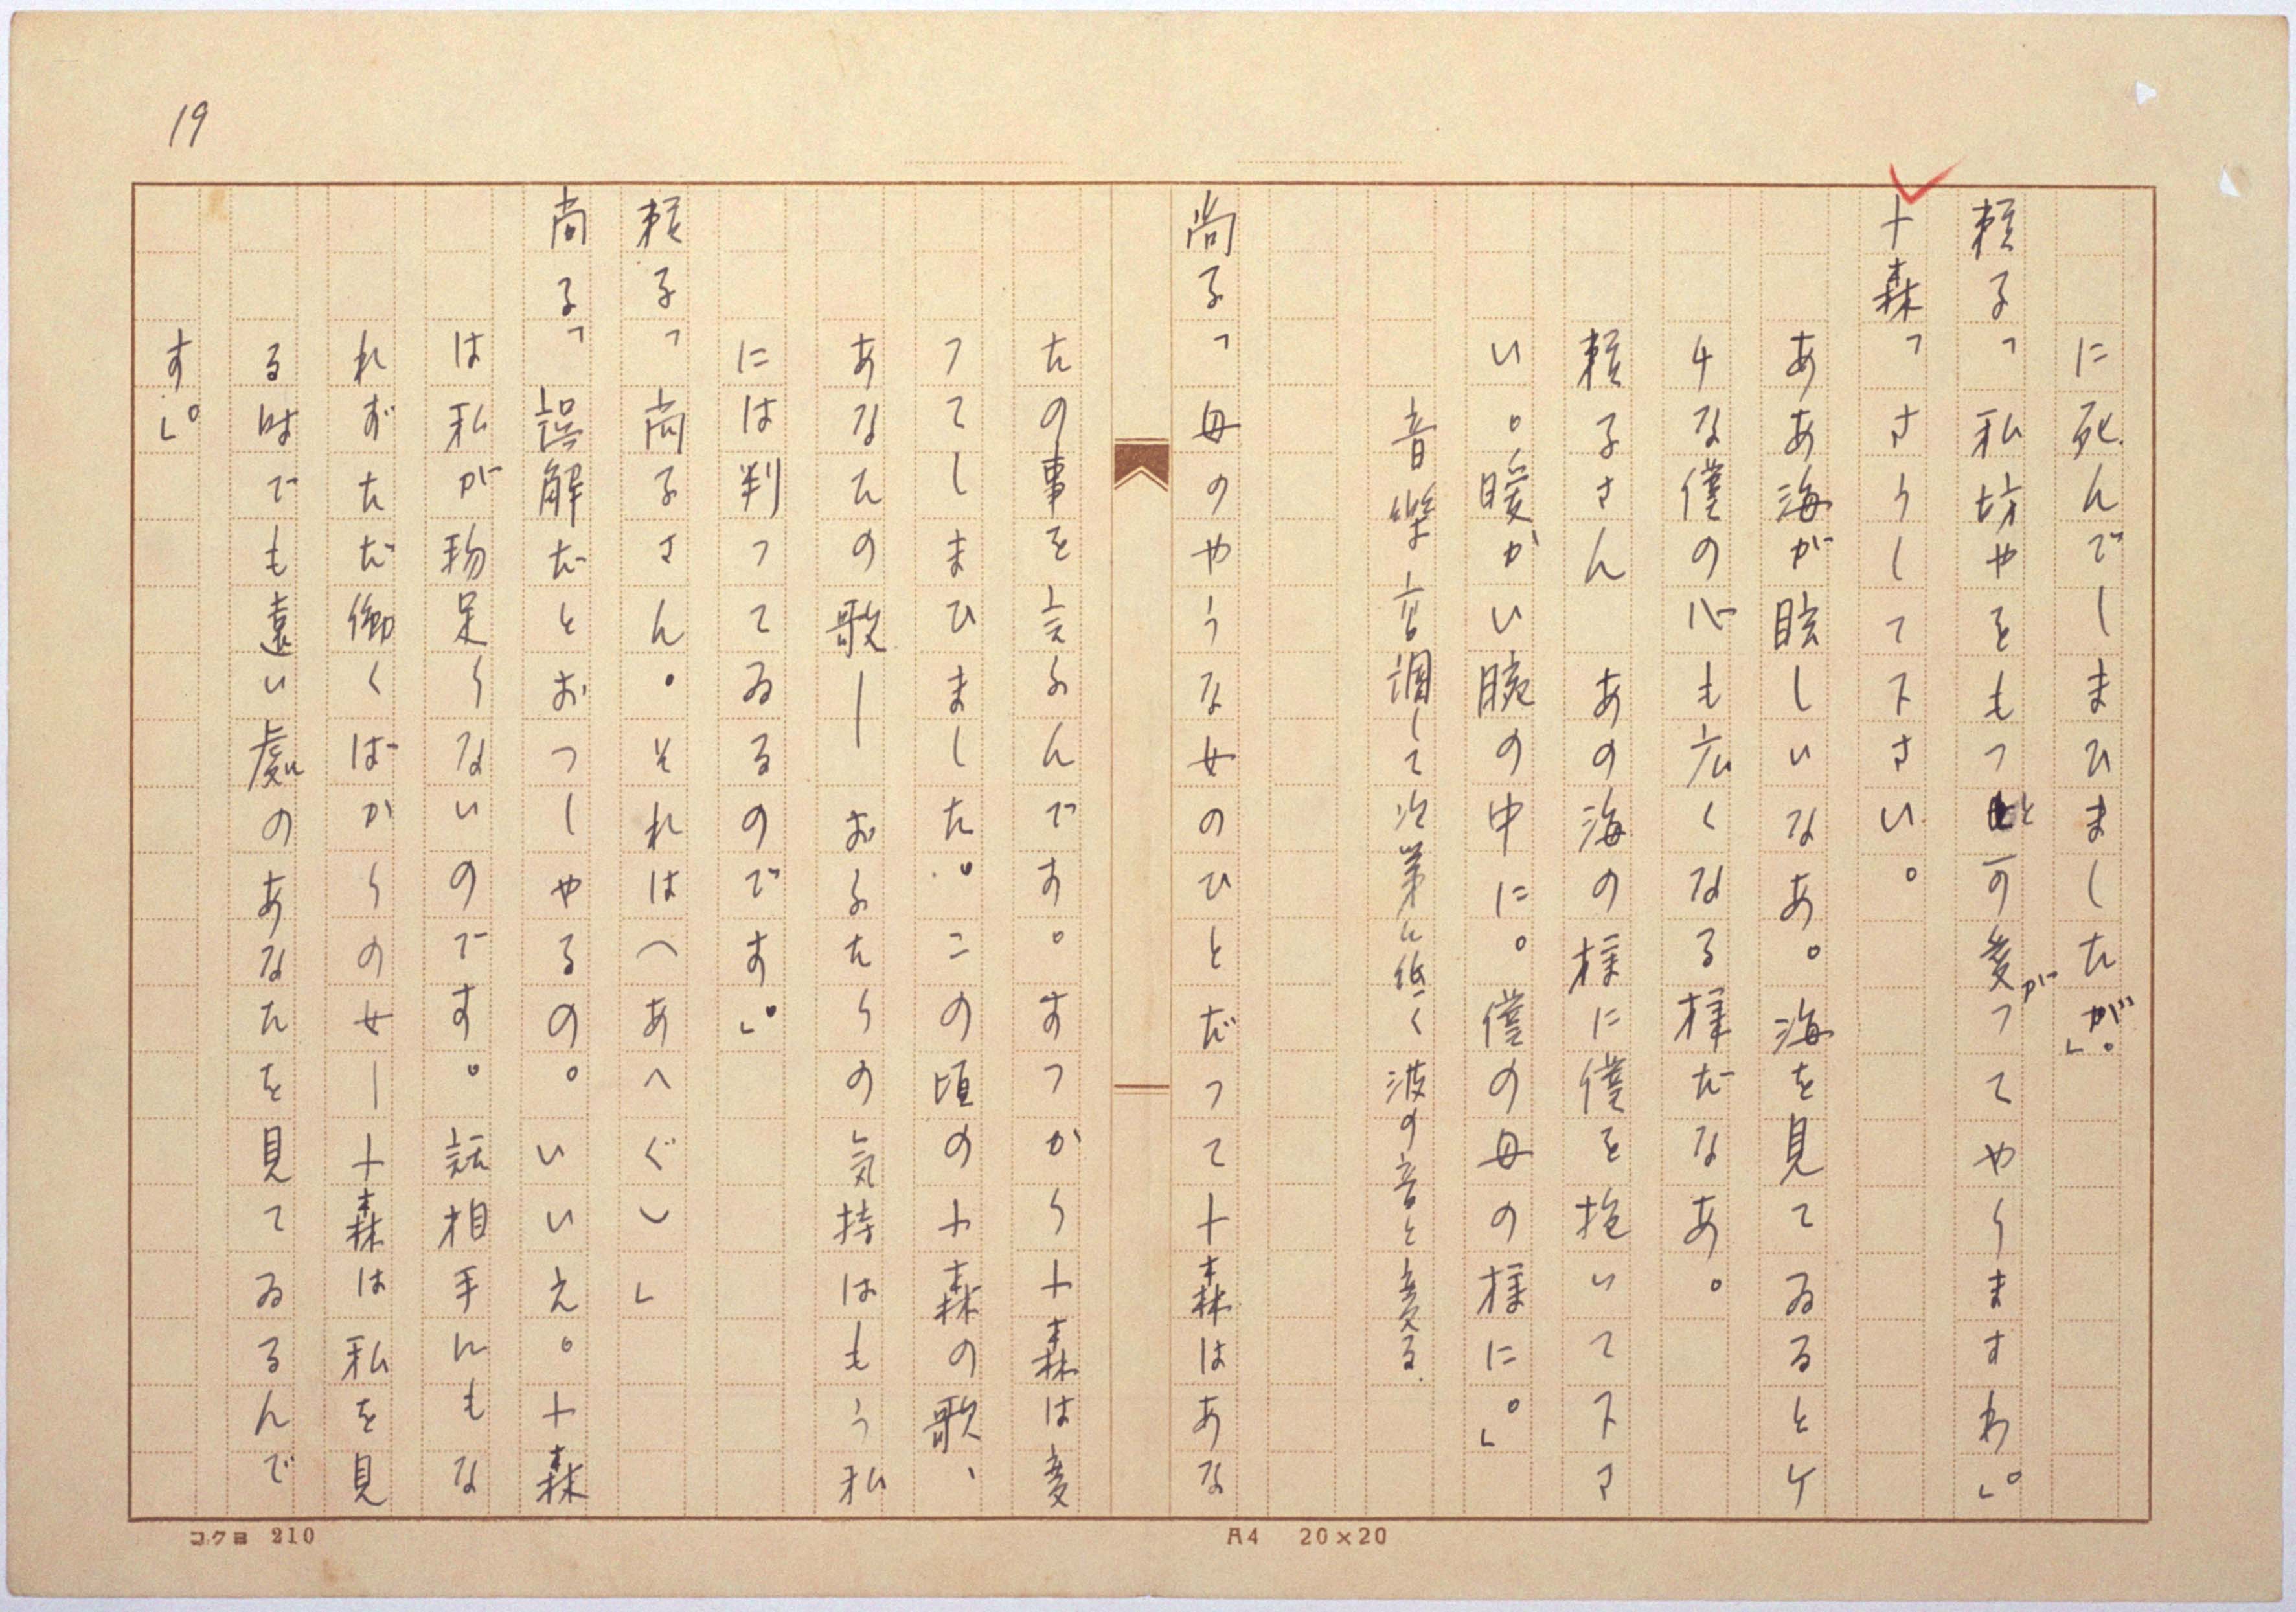 19
に死んでしまひましたが。」
頼子「私坊やをもつと可愛がつてやりますわ。」
十森「さうして下さい。
ああ海が眩しいなあ。海を見てゐるとケ
チな僕の心も広くなる様だなあ。
頼子さん　あの海の様に僕を抱いて下さ
い。暖かい腕の中に。僕の母の様に。」
音楽高調して次第に低く波の音と変る.
尚子「母のやうな女のひとだつて十森はあな
たの事を言ふんです。すつかり十森は変
つてしまひました。この頃の十森の歌、
あなたの歌―　おふたりの気持はもう私
には判つてゐるのです。」
頼子「尚子さん。それは(あへぐ)」
尚子「誤解だとおつしやるの。いいえ。十森
は私が物足りないのです。話相手にもな
れずただ働くばかりの女―十森は私を見
る時でも遠い處のあなたを見てゐるんで
す。」
コクヨ 210
A4 20×20